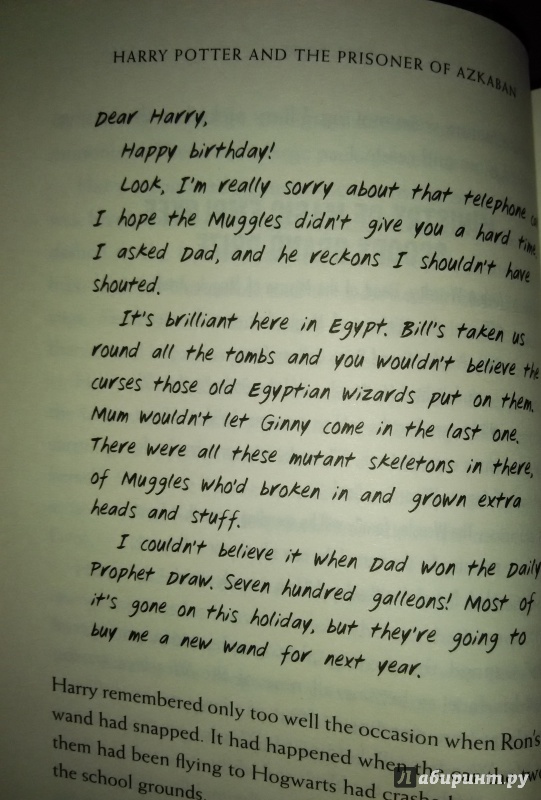 HARRY POTTER AND THE PRISONER OF AZKABAN
Dear Harry,
Happy birthday!
Look, I'm really sorry about that telephone
I hope the Muggles didn't give you a hard time.
I asked Dad, and he reckons I shouldn't have
shouted.
It's brilliant here in Egypt. Bill's taken us
round all the tombs and you wouldn't believe the
curses those old Egyptian wizards put on them.
Mum wouldn't let Ginny come in the last one.
There were all these mutant skeletons in there,
of Muggles who'd broken in and grown extra
heads and stuff.
I couldn't believe it when Dad won the Daily
Prophet Draw. Seven hundred galleons! Most of
it's gone on this holiday, but they're going to
buy me a new wand for next year.
Harry remembered only too well the occasion when Ron's
wand had snapped. It had happened when the
them had been flying to Hogwarts had crashed
the school grounds.
Лабиринт.ру